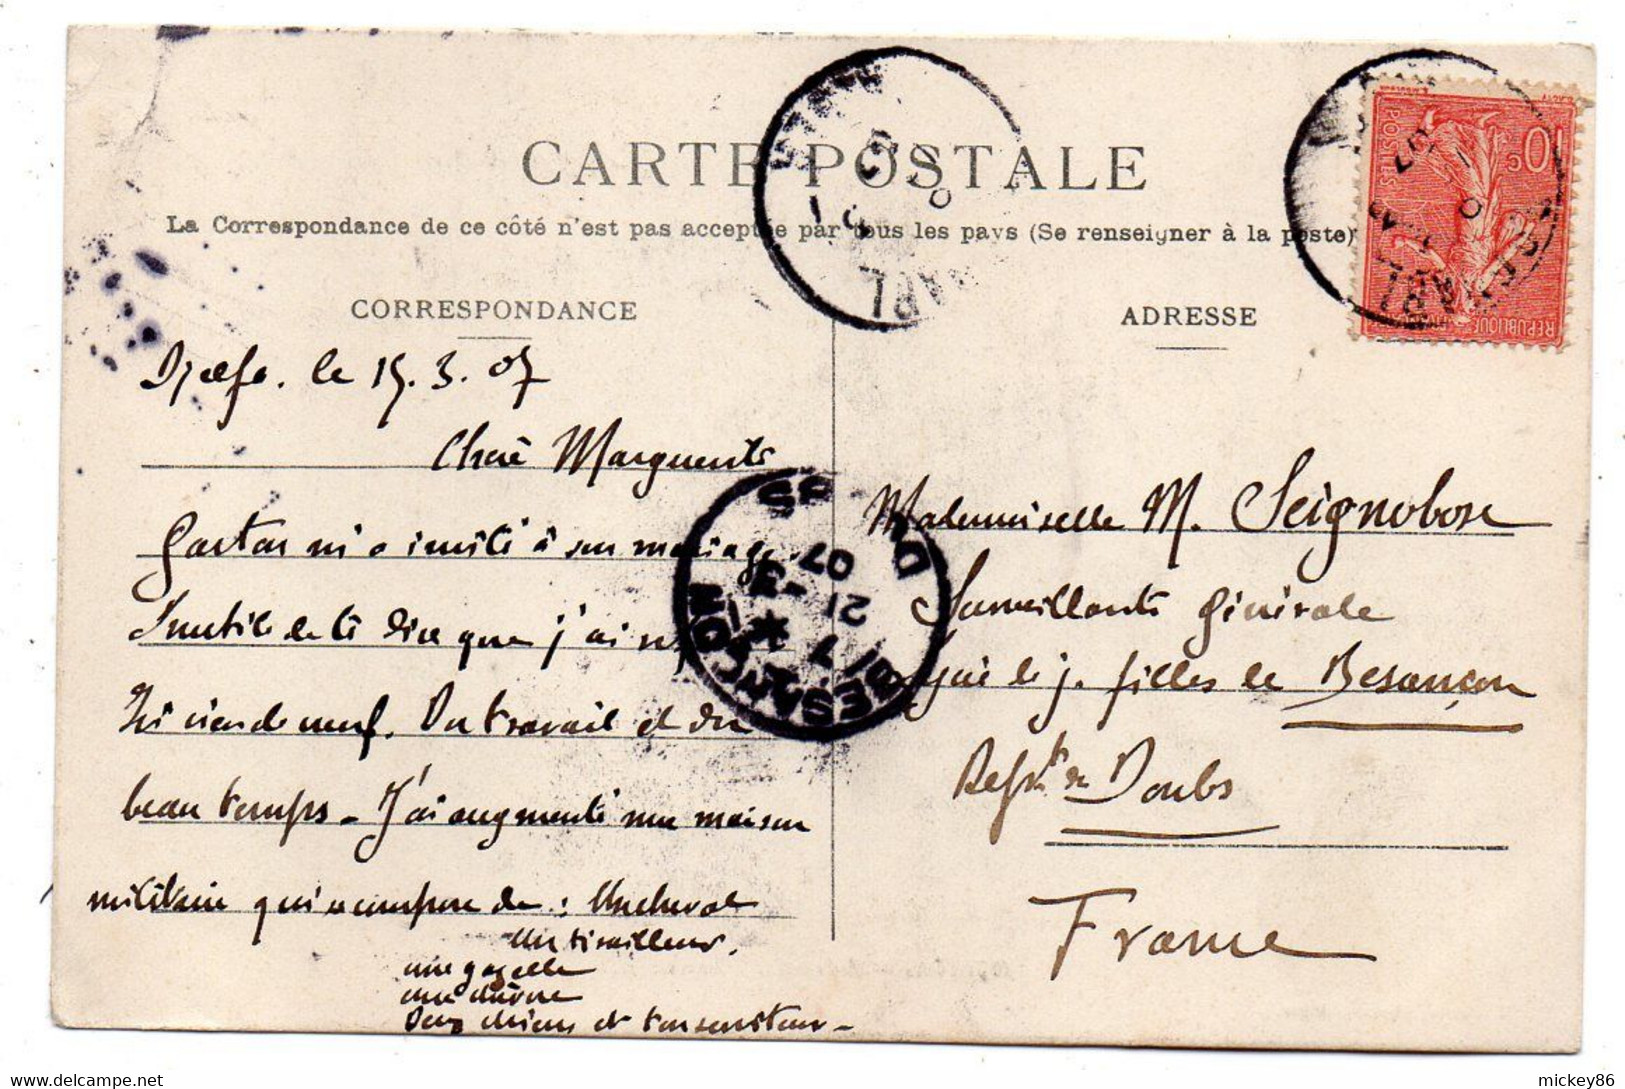 CARTE POSTALE
La Correspondance de ce côté n'est pas acceptée par tous les pays (Se renseigner à la poste)
CORRESPONDANCE
Djelfa. le 15.3.07
Chère Marguerite
Gaston m'a invité à son mariage.
Inutile de te dire que j'ai
Ici rien de neuf. Du travail et du
beau temps - J'ai augmenté ma maison
militaire qui se compose de : Un cheval
Un tirailleur.
une gazelle
une chèvre
Deux chiens et ton serviteur -
ADRESSE
Mademoiselle M. Seignobosc
Surveillante Générale
Lycée de j. filles de Besançon
Dépt du Doubs
France
10c
POSTES
REPUBLIQUE
BESANCON
DOUBS
7
21 -3
07
mickey86